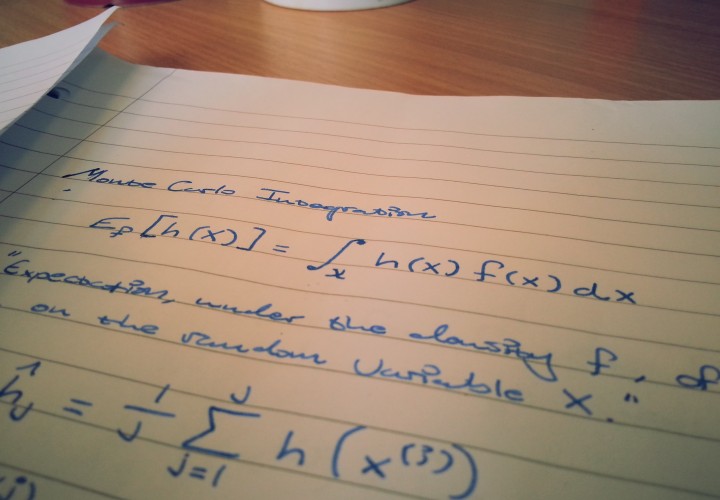 Monte Carlo Integration
E_f[h(x)] = ∫_x h(x) f(x) dx
"Expectation, under the density f, of
on the random variable X."
ĥ_J = 1/J ∑_{j=1}^{J} h(x^{(j)})
(j)